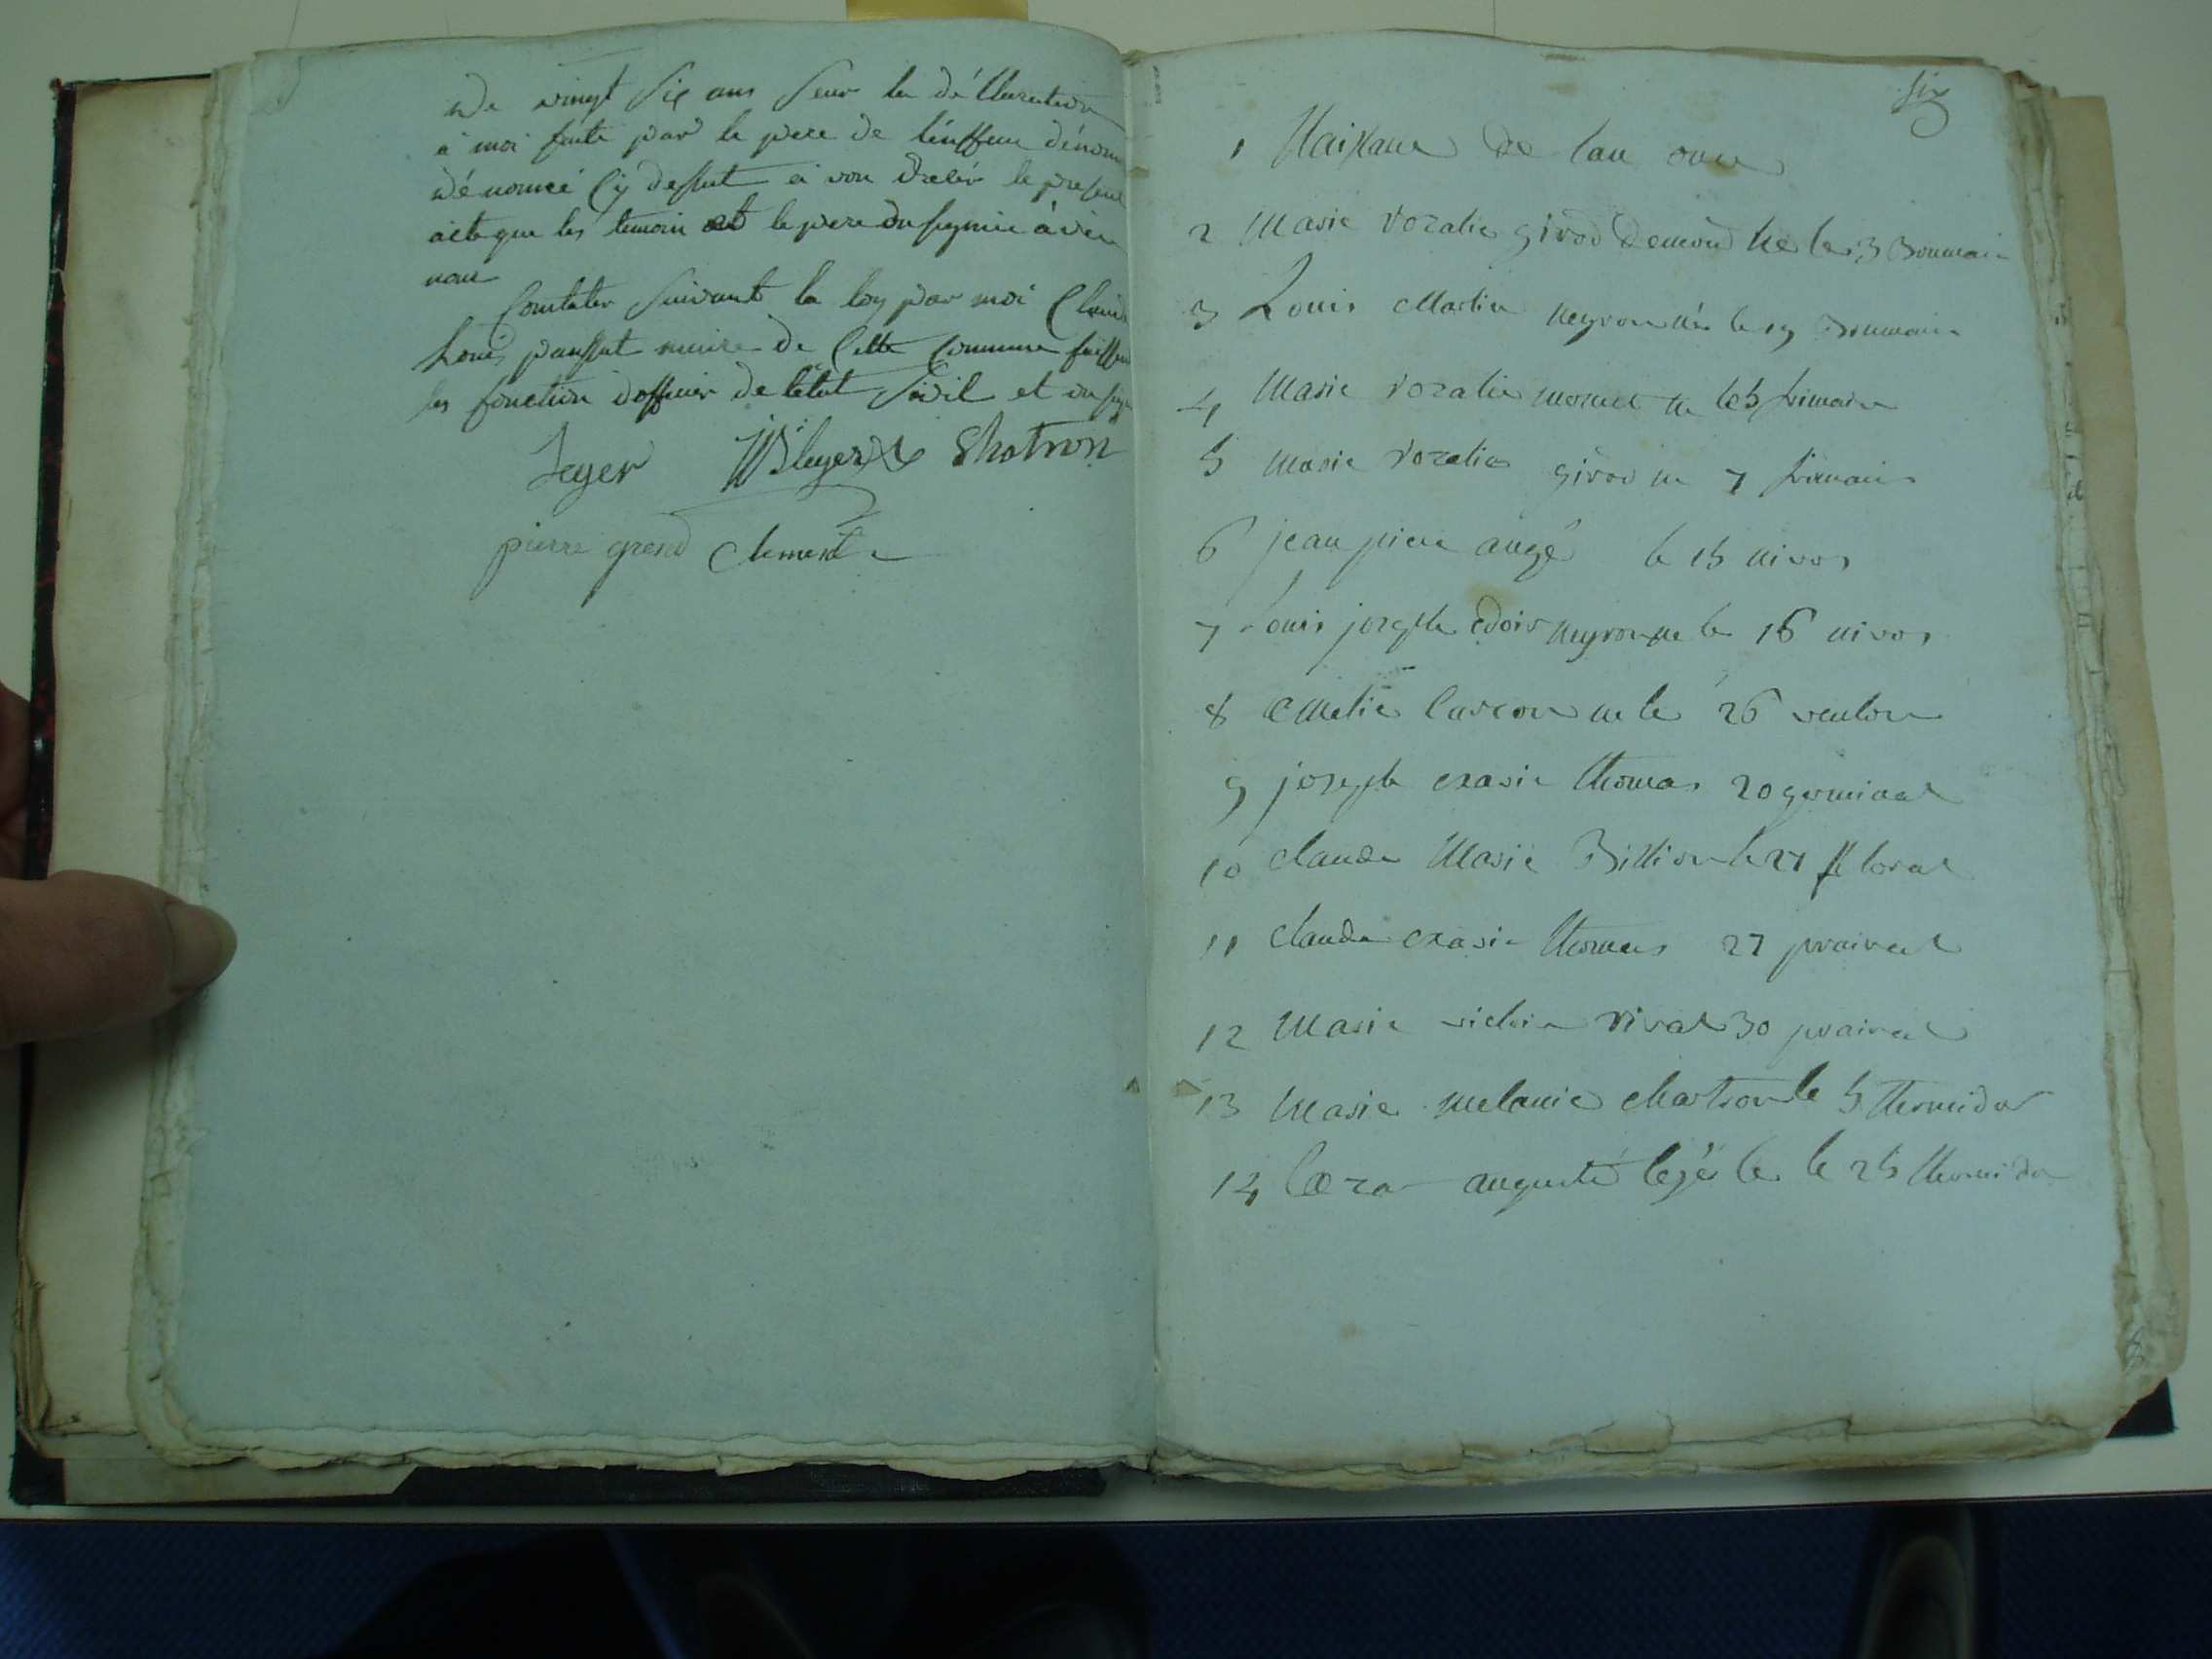 de vingt six ans sur la déclaration
à moi faite par le pere de l'enffans dénom
dénomé Cy dessut à von Prelér le presant
acte que les temoin et le pere on signiée àvec
nous
Constater suivant la loy par moi Claude
Louis panssut maire de Cette Commune faissan
les fonction d'officier de l'état sivil et on sig
Leger JJBleger Chatron
pierre grand Clement
six
1 Naissance de lan onze
2 Marie rozalie girod née le 3 Brumair
3 Louis Martin neyron née le 19 Brumair
4 Marie rozalie monet ne le 5 frimaire
5 Marie rozalie girod ne 7 frimaire
6 jean piere augé le 15 nivos
7 Louis joseph neyron ne le 16 nivos
8 Emelie ne le 26 ventose
9 joseph exavie thomas 20 germinal
10 claude Marie Billion le 27 floral
11 claude exavie thomas 27 prairial
12 Marie victoire rival 30 prairial
13 Marie melanie chartron le 5 thermidor
14 auguste legé le le 25 thermidor